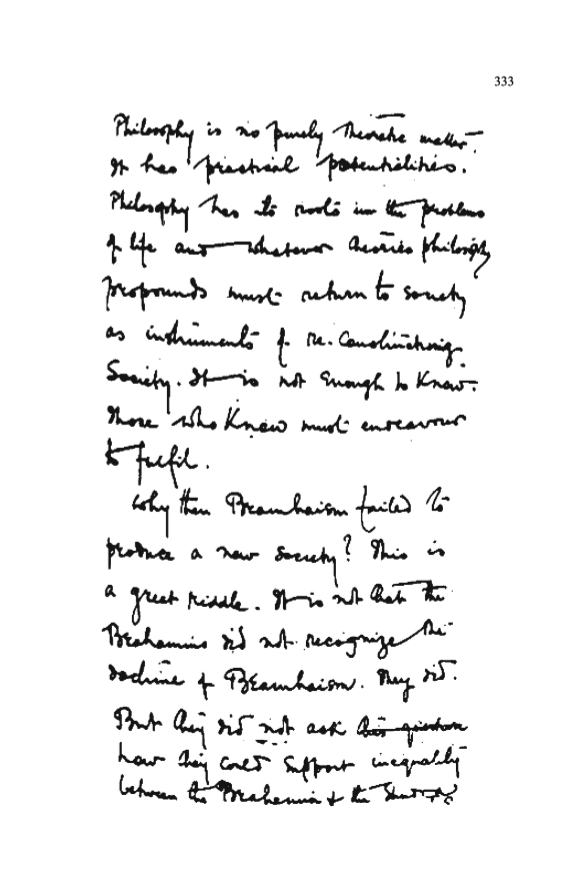 333
Philosophy is no purely theoretic matter.
It has practical potentialities.
Philosophy has its roots in the problems
of life and whatever theories philosophy
propounds must return to society
as instruments of re-constructing
Society. It is not enough to know.
Those who know must endeavour
to fulfil.
Why then Bramhaism failed to
produce a new society? This is
a great riddle. It is not that the
Brahamins did not recognize the
doctrine of Bramhaism. They did.
But they did not ask this question
how they could support inequality
between the Brahamin & the